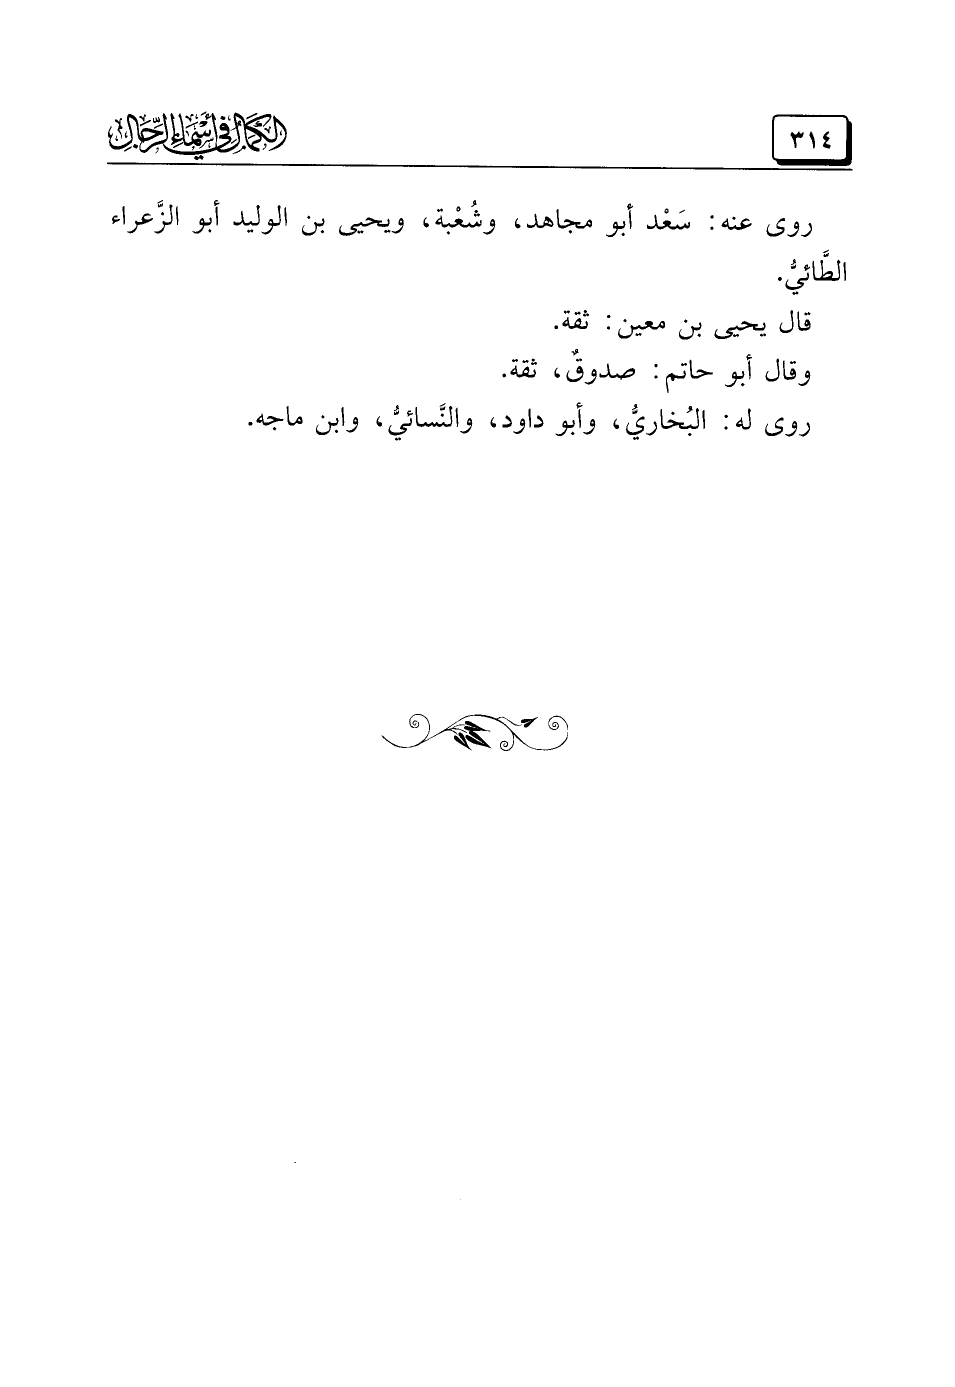 ٣١٤
الكمال في أسماء الرجال
روى عنه: سَعْد أبو مجاهد، وشُعْبة، ويحيى بن الوليد أبو الزَّعراء
الطَّائيُّ.
قال يحيى بن معين: ثقة.
وقال أبو حاتم: صدوقٌ، ثقة.
روى له: البُخاريُّ، وأبو داود، والنَّسائيُّ، وابن ماجه.